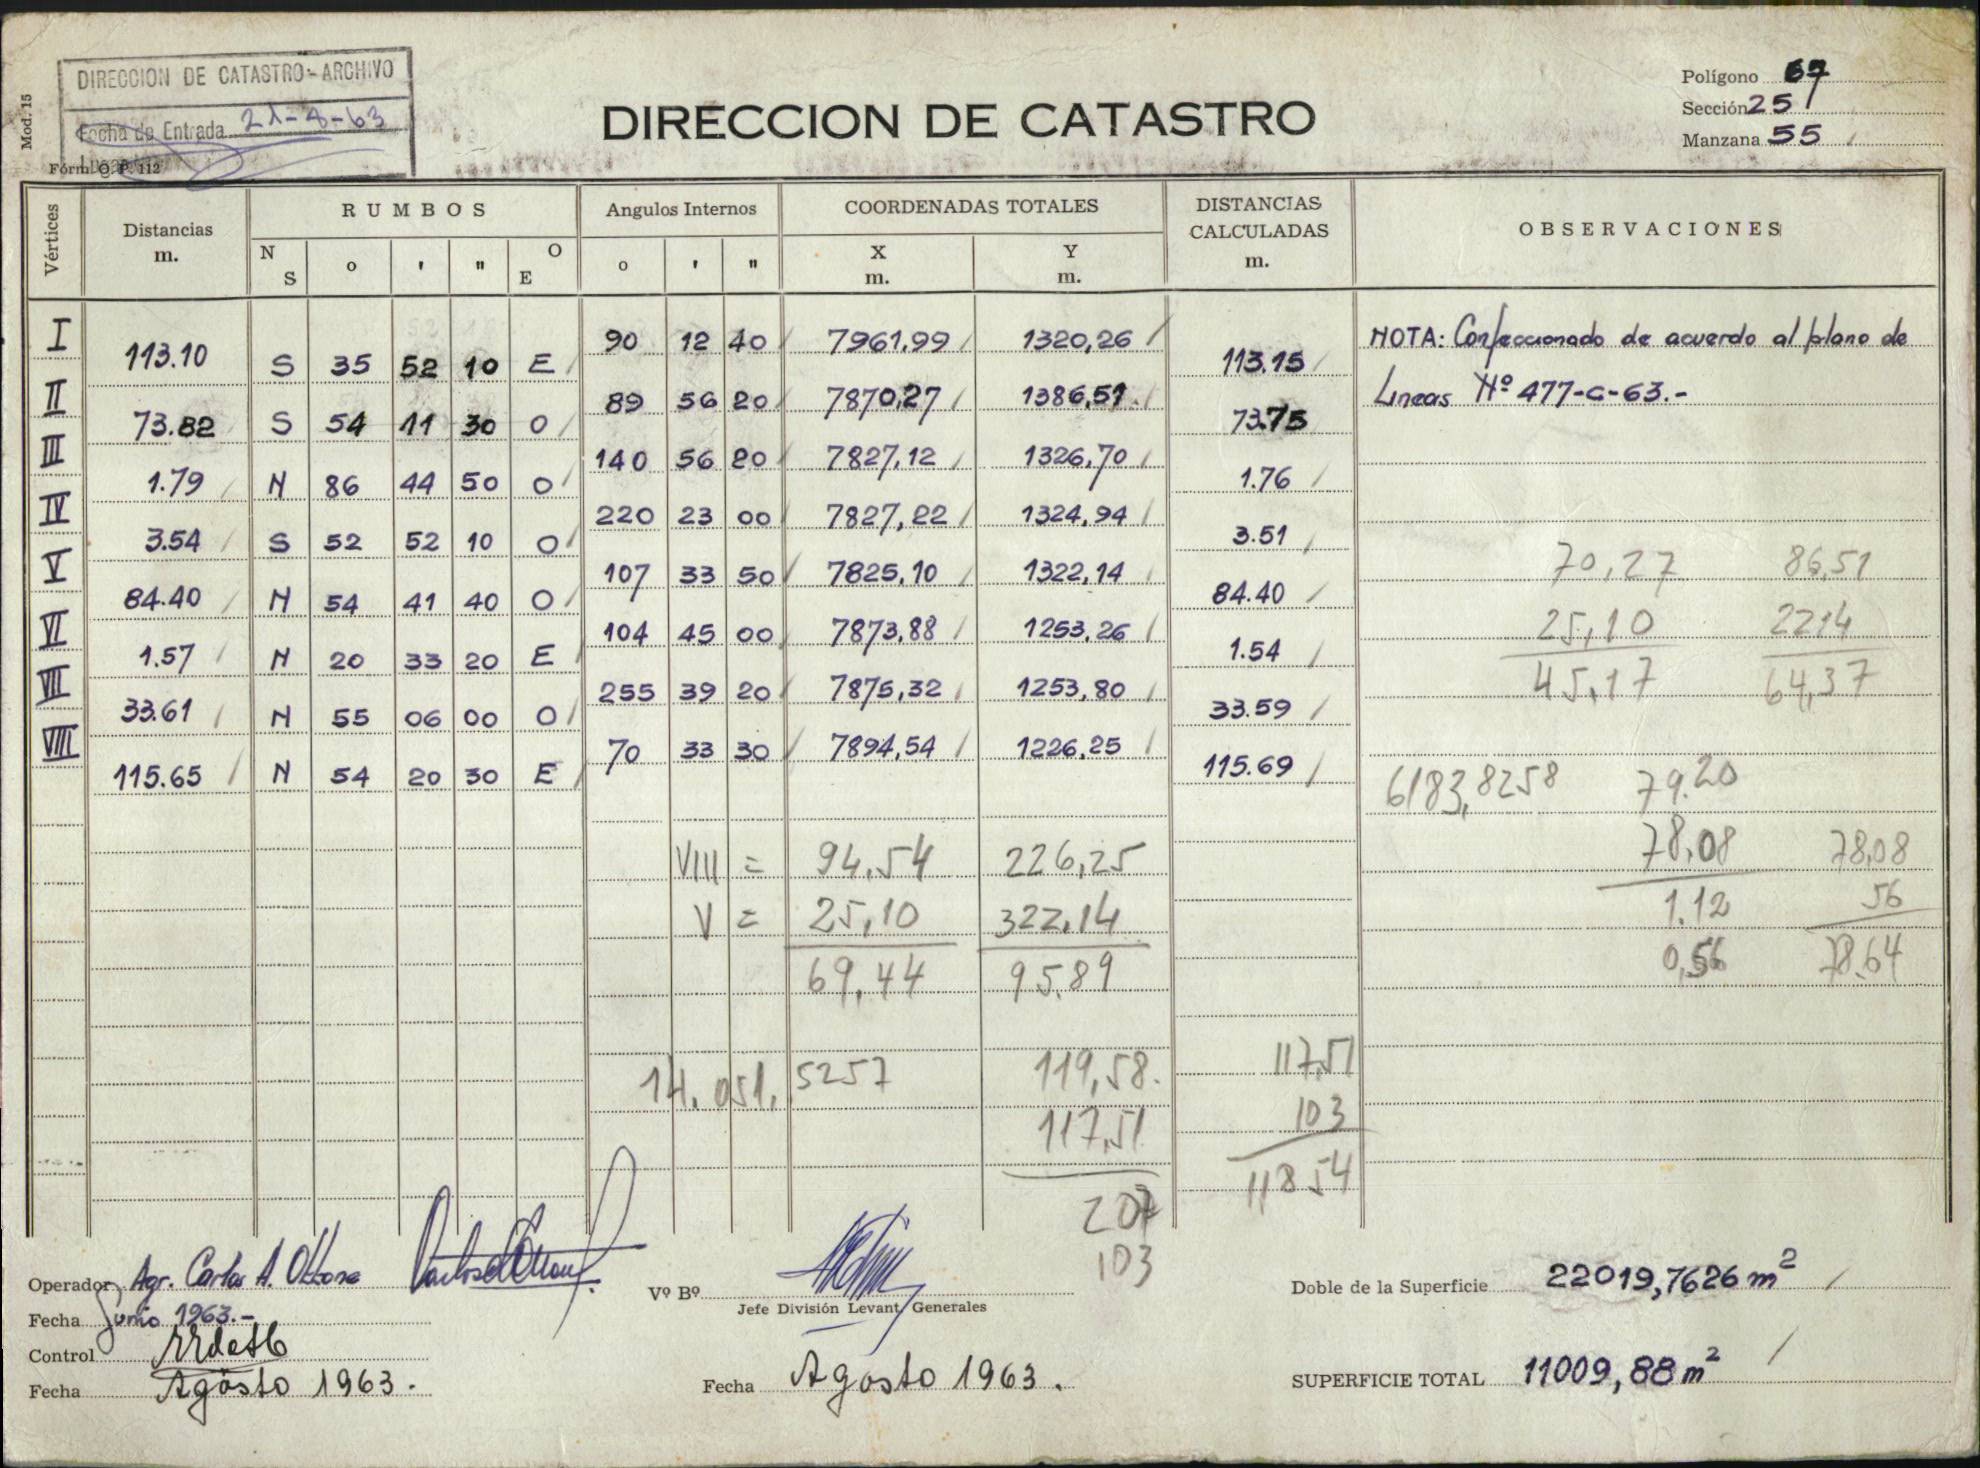 DIRECCION DE CATASTRO - ARCHIVO
Fecha de Entrada 21-8-63
Mod. 15
Fórm. O. P. 112
DIRECCION DE CATASTRO
Polígono 67
Sección 25
Manzana 55
Vértices
Distancias m.
RUMBOS
N S o ' " O E
Angulos Internos
o ' "
COORDENADAS TOTALES
X m. Y m.
DISTANCIAS CALCULADAS m.
OBSERVACIONES
I 90 12 40 7961,99 1320,26
113.10 S 35 52 10 E 113.15
II 89 56 20 7870,27 1386,51
73.82 S 54 11 30 O 73.75
III 140 56 20 7827,12 1326,70
1.79 N 86 44 50 O 1.76
IV 220 23 00 7827,22 1324,94
3.54 S 52 52 10 O 3.51
V 107 33 50 7825,10 1322,14
84.40 N 54 41 40 O 84.40
VI 104 45 00 7873,88 1253,26
1.57 N 20 33 20 E 1.54
VII 255 39 20 7875,32 1253,80
33.61 N 55 06 00 O 33.59
VIII 70 33 30 7894,54 1226,25
115.65 N 54 20 30 E 115.69
NOTA: Confeccionado de acuerdo al plano de
Lineas Nº 477-C-63.-
70,27 86,51
25,10 2214
45,17 64,37
6183,8258 79.20
78,08 78,08
1.12 56
0,56 78.64
VIII = 94,54 226,25
V = 25,10 322,14
69,44 95,89
14.051,5257 119,58.
117,51
207
103
117,51
103
118 54
Operador Agr. Carlos A. Ottone
Fecha Junio 1963.-
Control
Fecha Agosto 1963.
Vº Bº
Jefe División Levant. Generales
Fecha Agosto 1963.
Doble de la Superficie 22019,7626 m²
SUPERFICIE TOTAL 11009,88 m²